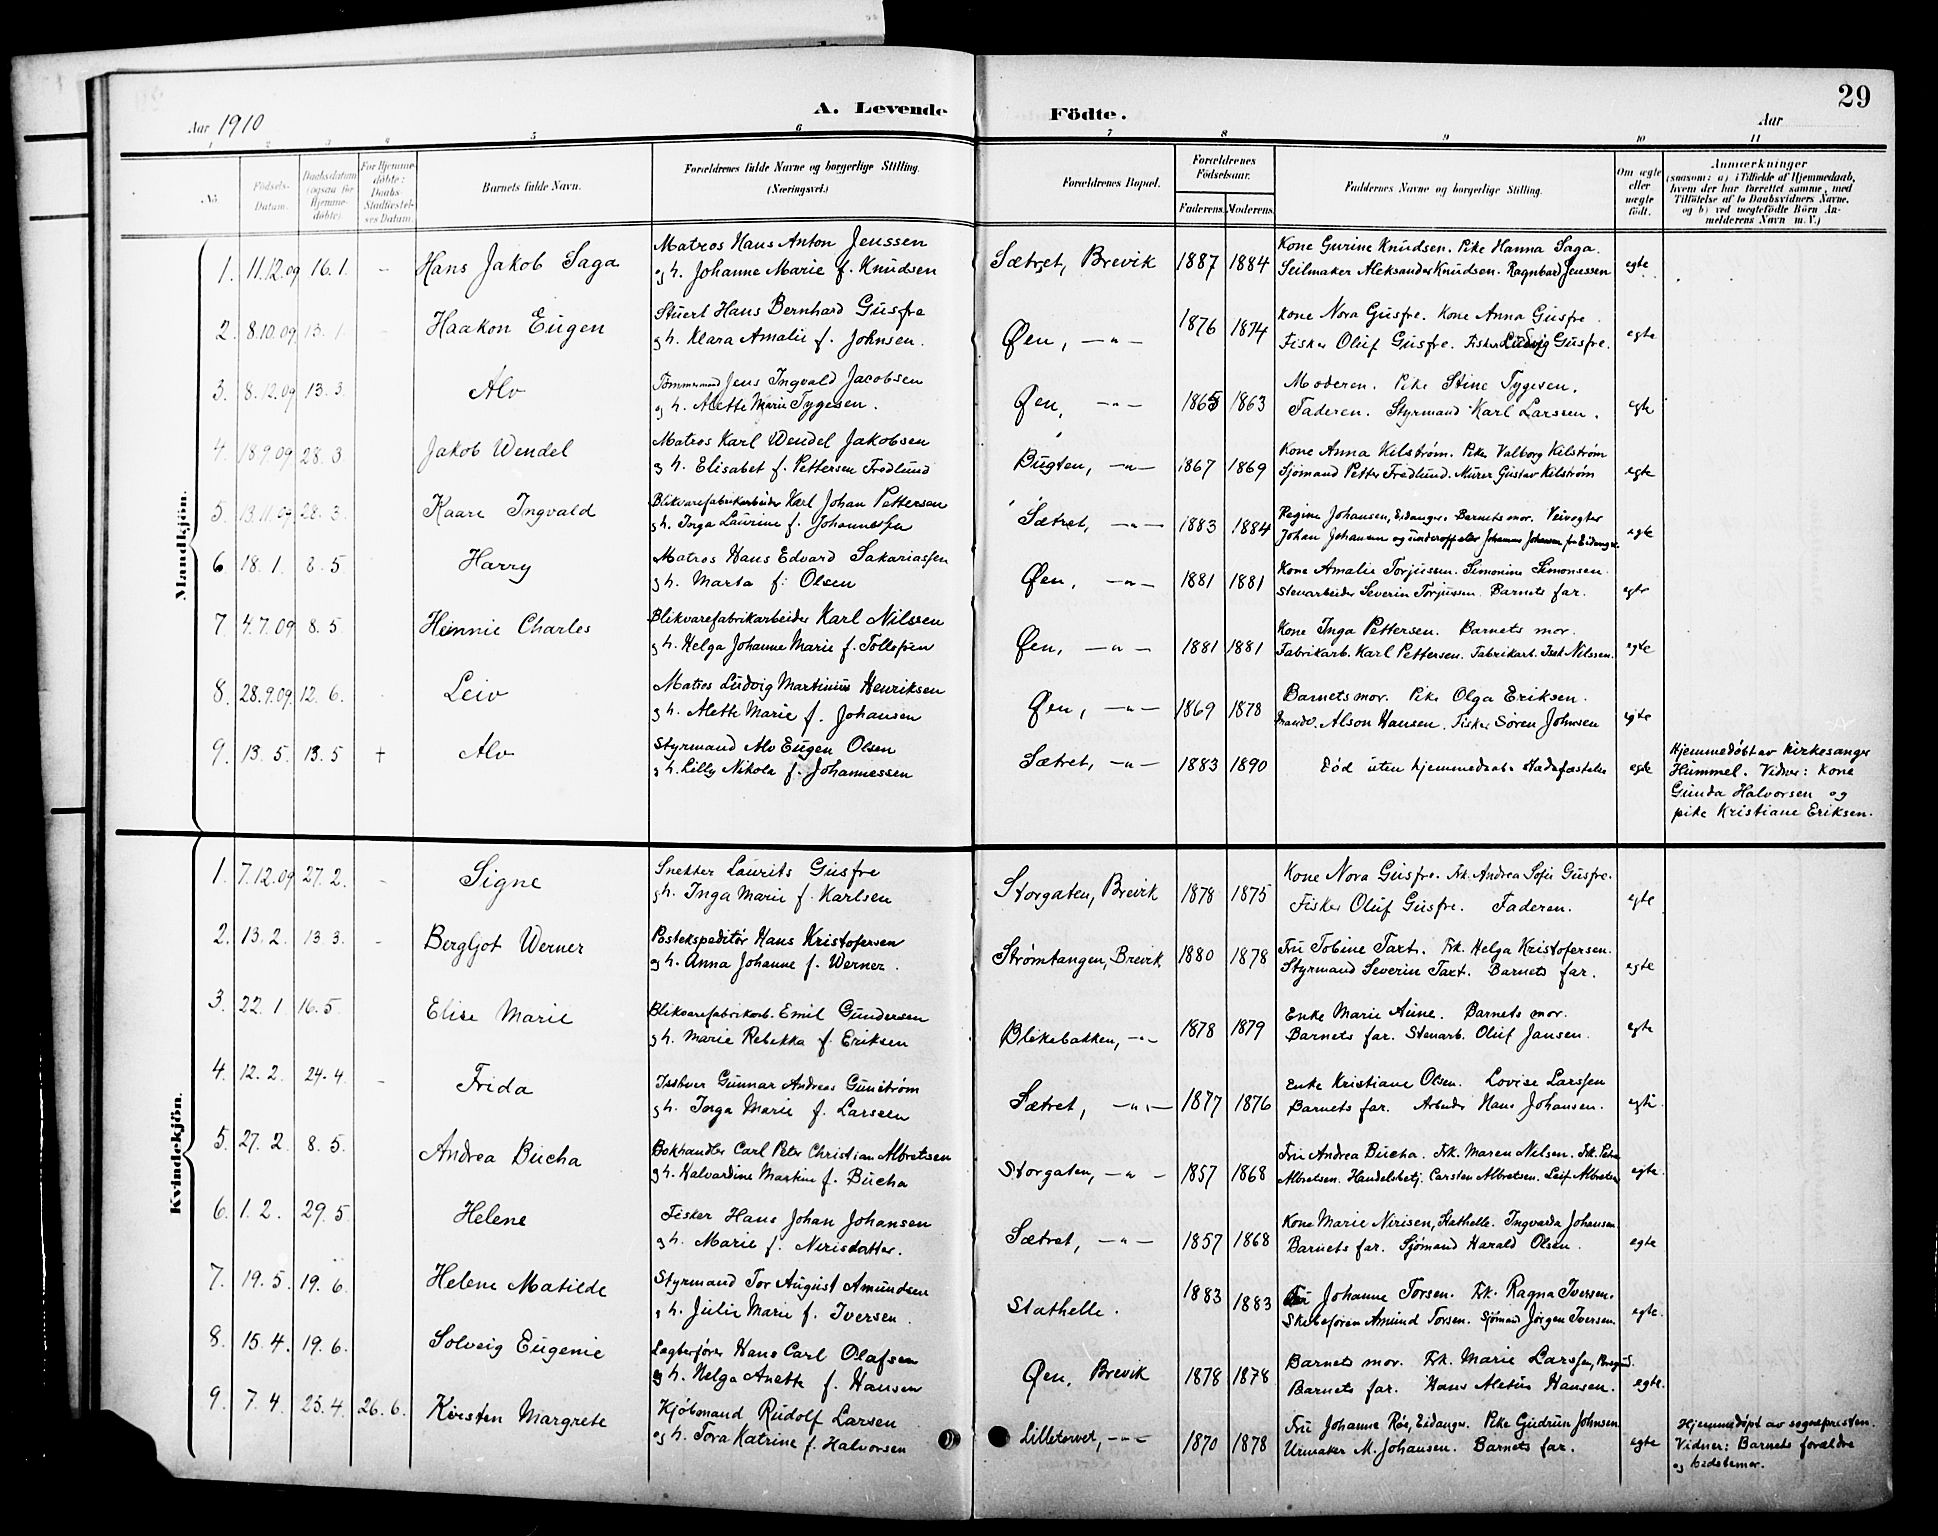 29
A. Levende Födte.
Aar 1910
Aar
1 2 3 4 5 6 7 8 9 10 11
No.
Födsels-Datum.
Daabsdatum (ogsaa for Hjemme-döbte).
For Hjemme-döbte: Daabs-Stadfæstel-ses Datum.
Barnets fulde Navn.
Forældrenes fulde Navne og borgerlige Stilling. (Næringsvei.)
Forældrenes Bopæl.
Forældrenes Födselsaar.
Faderens. Moderens.
Faddernes Navne og borgerlige Stilling.
Om ægte eller uægte födt.
Anmærkninger
(saasom: a) i Tilfælde af Hjemmedaab, hvem der har forrettet samme, med Tilföielse af to Daabsvidners Navne, og b) ved uegtefödte Börn An-melderens Navn m. V.)
Mandkjön.
1. 11.12.09 16.1. - Hans Jakob Saga
Matros Hans Anton Jenssen
og h. Johanne Marie f. Knudsen
Sætret, Brevik 1887 1884
Kone Gurine Knudsen. Pike Hanna Saga.
Seilmaker Aleksander Knudsen. Ragnbard Jenssen
egte
2. 8.10.09 13.1. - Haakon Eugen
Stuert Hans Bernhard Gusfre
og h. Klara Amalie f. Johnsen.
Øen, -"- 1876 1874
Kone Nora Gusfre. Kone Anna Gusfre.
Fisker Oluf Gusfre. Fisker Ludvig Gusfre.
egte
3. 8.12.09 13.3 Alv
Tømmermand Jens Ingvald Jacobsen
og h. Alette Marie Tygesen.
Øen, -"- 1865 1863
Moderen. Pike Stine Tygesen.
Faderen. Styrmand Karl Larssen.
egte
4. 18.9.09 28.3 Jakob Wendel
Matros Karl Wendel Jakobsen
og h. Elisabet f. Pettersen Fredlund
Bugten, -"- 1867 1869
Kone Anna Kilstrøm. Pike Valborg Kilstrøm
Sjømand Petter Fredlund. Murer Gustav Kilstrøm
egte
5. 13.11.09 28.3. Kaare Ingvald
Blikvarefabrikarbeider Karl Johan Pettersen
og h. Inga Laurine f. Johannessen
Sætret, -"- 1883 1884
Regine Johansen, Eidanger. Barnets mor. Veivogter
Johan Johansen og underoff. elev Johannes Johansen fra Eidanger
egte
6 18.1. 8.5 Harry
Matros Hans Edvard Sakariassen
og h. Marta f. Olsen
Øen, -"- 1881 1881
Kone Amalie Torjussen. Simonine Simonsen.
Stenarbeider Severin Torjussen. Barnets far.
egte
7. 4.7.09 8.5 Hennie Charles
Blikvarefabrikarbeider Karl Nilssen
og h. Helga Johanne Marie f. Tollefsen
Øen, -"- 1881 1881
Kone Inga Pettersen. Barnets mor.
Fabrikarb. Karl Pettersen. Fabrikarb. Isak Nilssen.
egte
8. 28.9.09 12.6. Leiv
Matros Ludvig Martinius Henriksen
og h. Alette Marie f. Johansen
Øen, -"- 1869 1878
Barnets mor. Pike Olga Eriksen.
Alson Hansen. Fisker Søren Johnsen
egte
9. 13.5 13.5 + Alv
Styrmand Alv Eugen Olsen
og h. Lilly Nikola f. Johannessen
Sætret, -"- 1883 1890
Død uten hjemmedaabs stadsfæstelse
egte
Hjemmedøbt av kirkesanger
Hummel. Vidner: Kone
Gunda Halvorsen og
pike Kristiane Eriksen.
Kvindekjön.
1. 7.12.09 27.2. - Signe
Snekker Laurits Gusfre
og h. Inga Marie f. Karlsen
Storgaten, Brevik 1878 1875
Kone Nora Gusfre. Frk. Andrea Sofie Gusfre.
Fisker Oluf Gusfre. Faderen.
egte
2. 13.2. 13.3. - Bergljot Werner
Postekspeditør Hans Kristofersen
og h. Anna Johanne f. Werner.
Strømtangen, Brevik 1880 1878
Fru Tobine Taxt. Frk. Helga Kristofersen.
Styrmand Severin Taxt. Barnets far.
egte
3. 22.1. 16.5 Elise Marie
Blikvarefabrikarb. Emil Gundersen
og h. Marie Rebekka f. Eriksen
Blikebakken, -"- 1878 1879
Enke Marie Aune. Barnets mor.
Barnets far. Stenarb. Oluf Jansen.
egte
4. 12.2. 24.4. - Frida
Gunnar Andreas Gunstrøm
og h. Inga Marie f. Larssen
Sætret, -"- 1877 1876
Enke Kristiane Olsen. Lovise Larssen
Barnets far. Arbeider Hans Johansen.
egte.
5. 27.2 8.5. Andrea Bucha
Bokhandler Carl Peter Christian Albretsen
og h. Halvardine Martine f. Bucha
Storgaten, -"- 1857 1868
Fru Andrea Bucha. Frk. Maren Nilsen. Frk. Petra
Albretsen. Handelsbetj. Carsten Albretsen. Leif Albretsen
egte.
6. 1.2. 29.5 Helene
Fisker Hans Johan Johansen
og h. Marie f. Nirisdatter.
Sætret, -"- 1857 1868
Kone Marie Nirisen, Stathelle. Ingvarda Johansen.
Barnets far. Sjømand Harald Olsen.
egte
7. 19.5. 19.6. Helene Matilde
Styrmand Tor August Amundsen
og h. Julie Marie f. Iversen.
Stathelle. 1883 1883
Fru Johanne Torsen. Frk. Ragna Iversen.
Skibsfører Amund Torsen. Sjømand Jørgen Iversen.
egte.
8. 15.4. 19.6. Solveig Eugenie
Hans Carl Olafsen
og h. Helga Anette f. Hansen
Øen, Brevik 1878 1878
Barnets mor. Frk. Marie Larssen,
Barnets far. Hans Aletus Hansen.
egte.
9. 7.4. 25.4. 26.6. Kirsten Margrete
Kjøbmand Rudolf Larsen
og h. Tora Katrine f. Halvorsen
Lilletorvet, -"- 1870 1878
Fru Johanne Røe, Eidanger. Pike Gudrun Johnsen
Urmaker M. Johansen. Barnets far.
egte
Hjemmedøpt av sognepresten.
Vidner: Barnets forældre
og bedstemor.